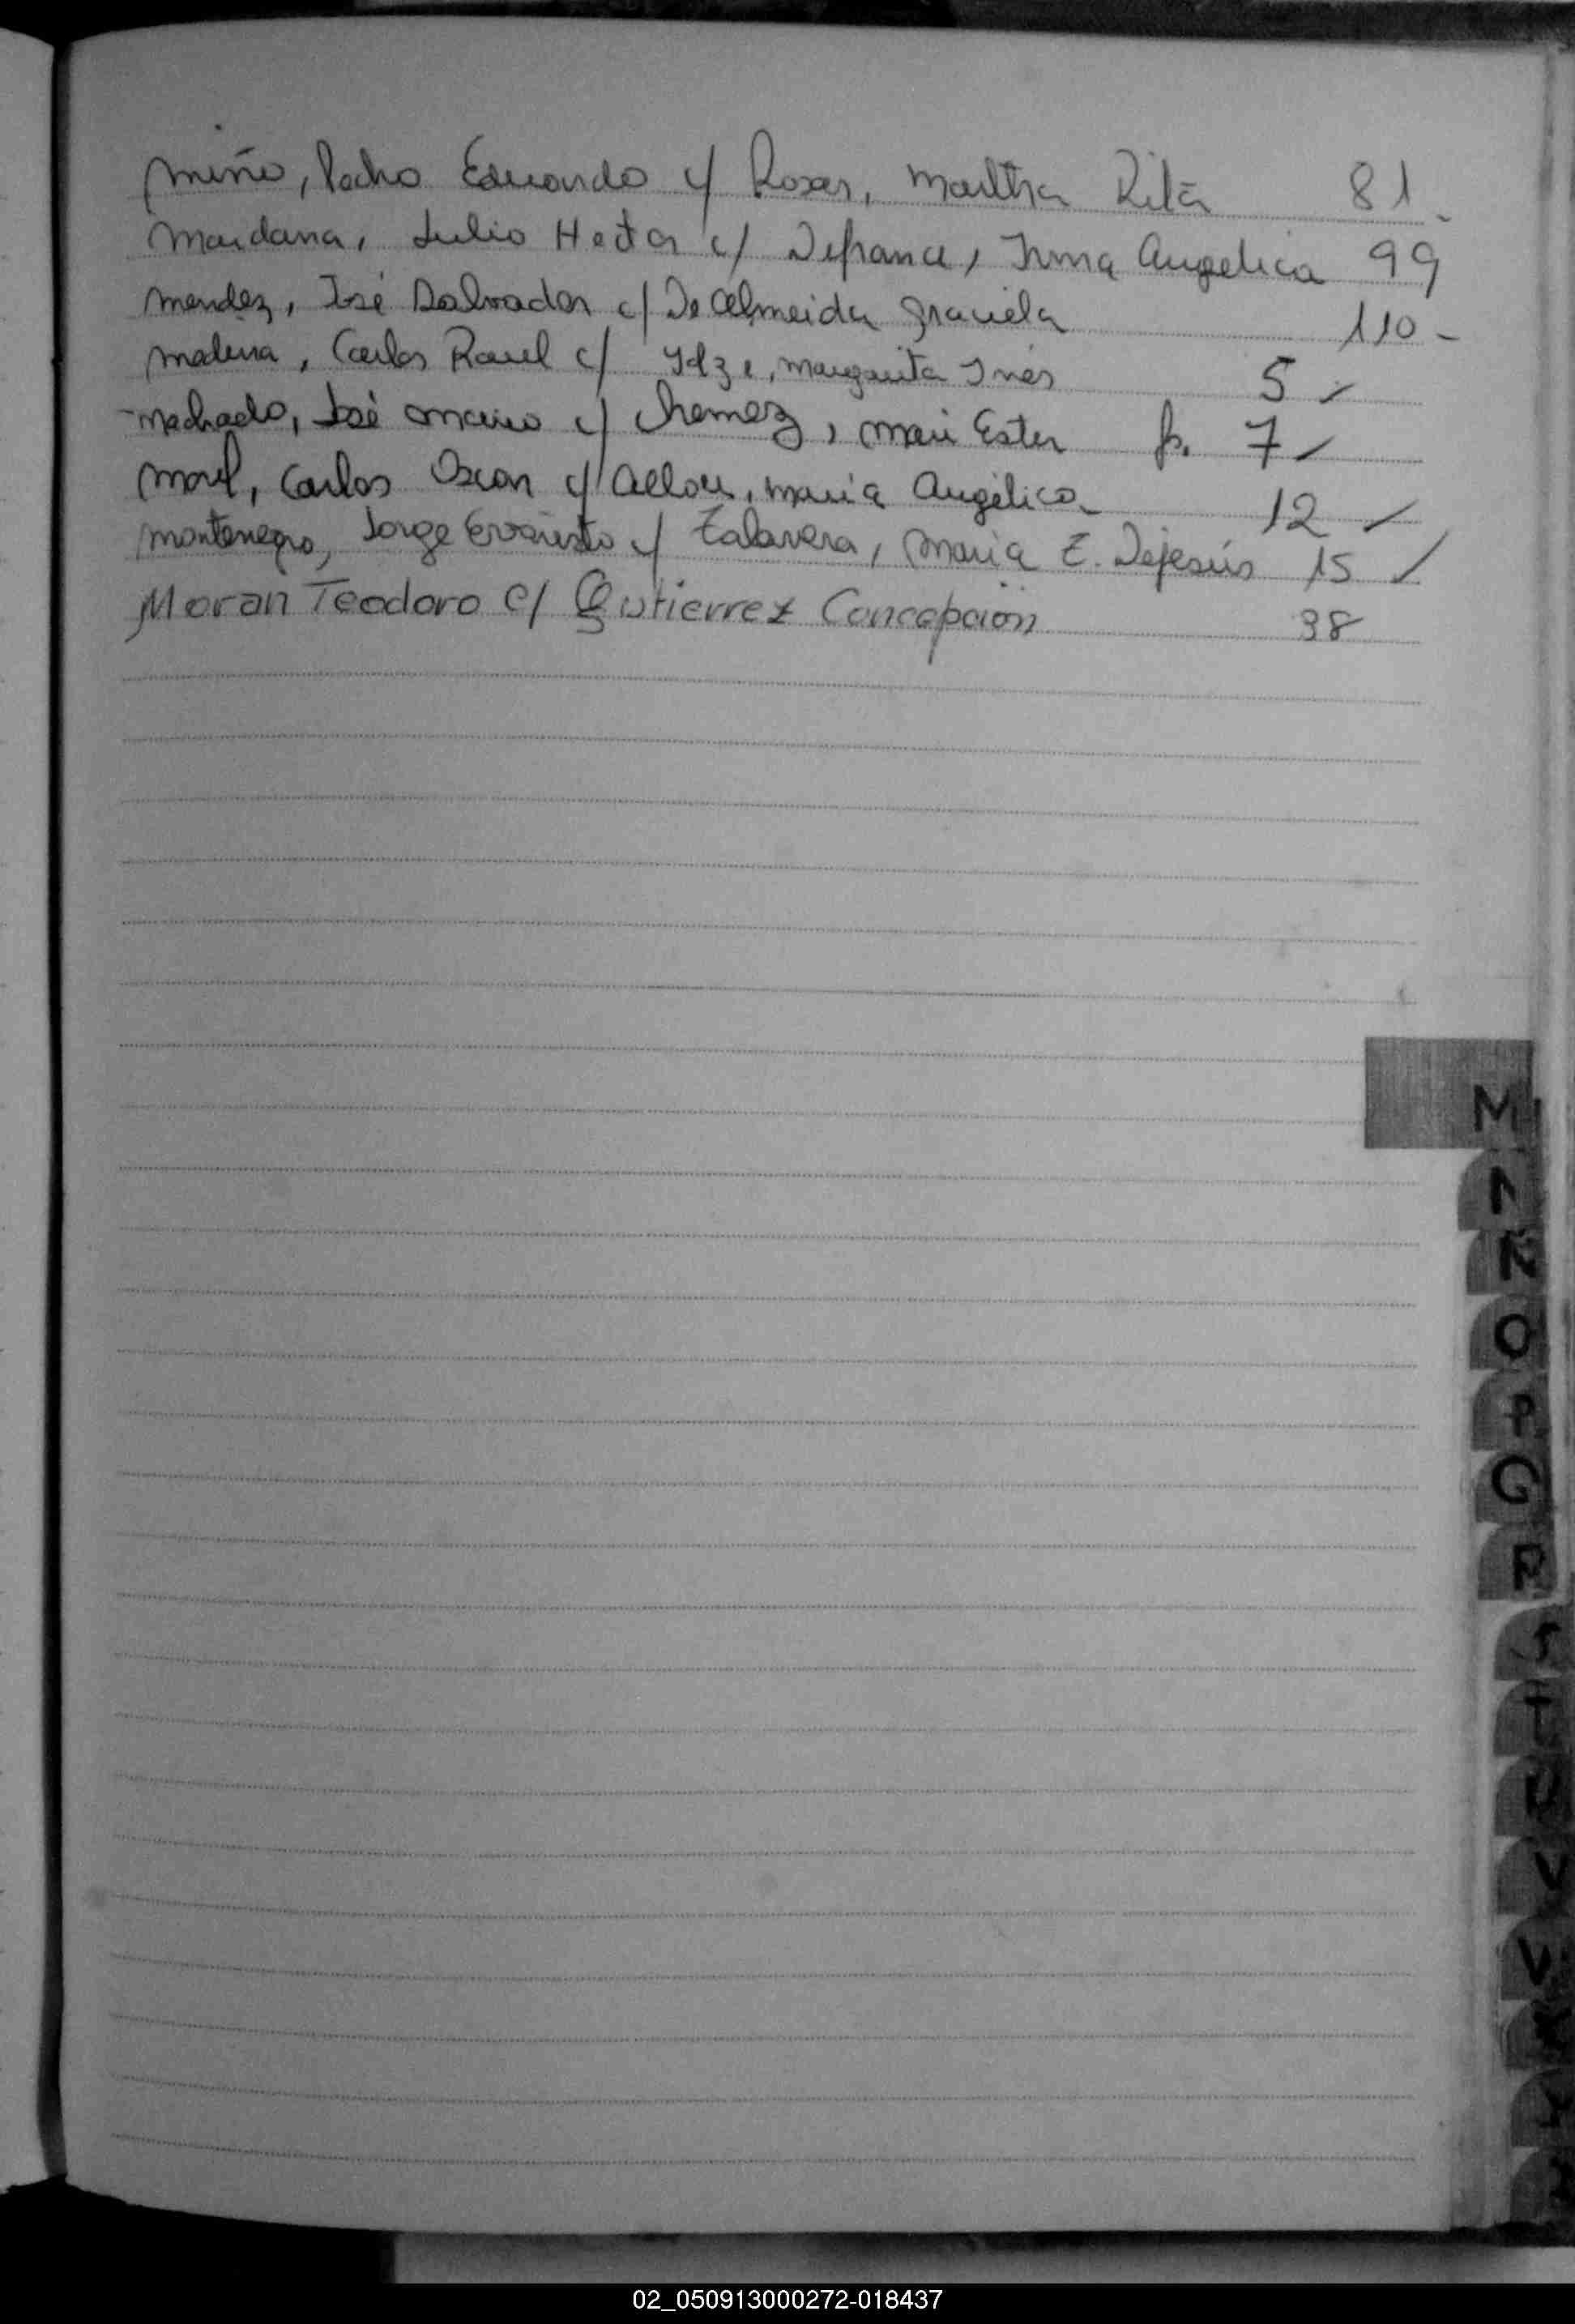 Miño, Pedro Eduardo c/ Rosas, Martha Rita 81 -
Maidana, Julio Hector c/ Defrance, Irma Angelica 99
Mendez, José Salvador c/ De Almeida Graciela 110 -
Medina, Carlos Raul c/ Margarita Inés 5 ✓
- Machado, José c/ Ester fs. 7 ✓
Morel, Carlos Oscar c/ Maria Angélica 12 ✓
Montenegro, Jorge Evaristo c/ Talavera, Maria E. Dejesús 15 ✓
Moran Teodoro c/ Gutierrez Concepción 38
M
N
Ñ
O
P
Q
R
S
T
U
V
02_050913000272-018437